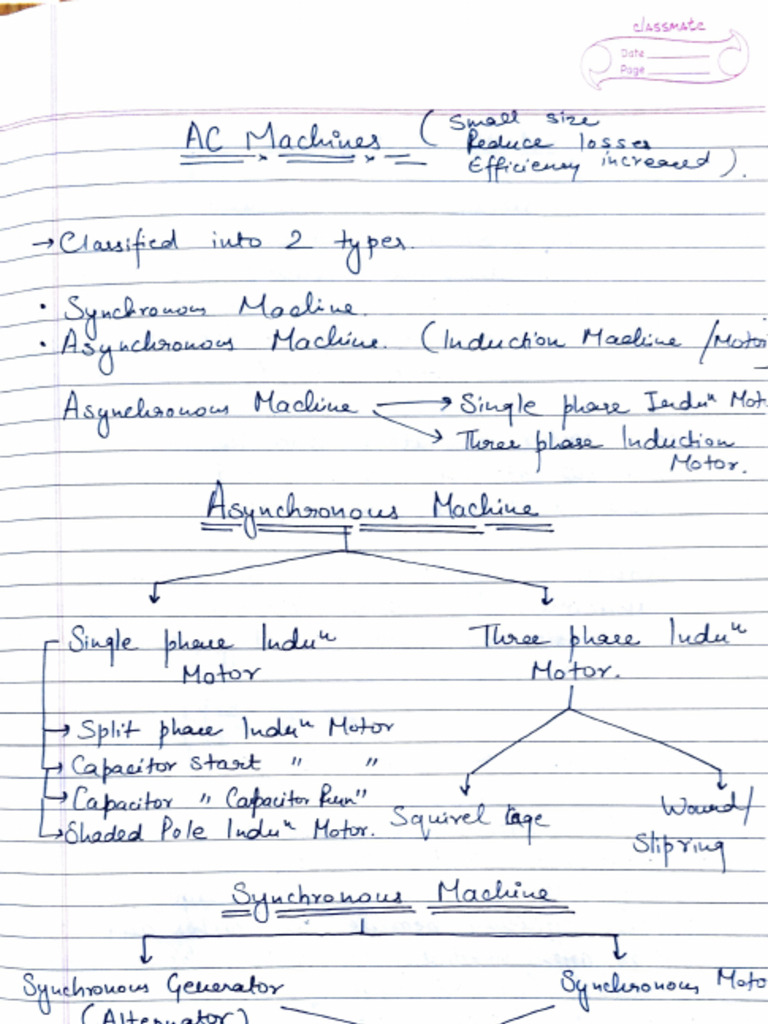 classmate
Date
Page
AC Machines ( Small size
Reduce losses
Efficiency increased ).
→ Classified into 2 types.
• Synchronous Machine.
• Asynchronous Machine. (Induction Machine /Motor
Asynchronous Machine → Single phase Induⁿ Mot.
→ Three phase Induction
Motor.
Asynchronous Machine
Single phase Induⁿ Three phase Induⁿ
Motor Motor.
→ Split phase Induⁿ Motor
→ Capacitor start " "
→ Capacitor " Capacitor Run"
→ Shaded Pole Induⁿ Motor. Squirel Cage Wound/
Slipring
Synchronous Machine
Synchronous Generator Synchronous Moto
(Alternator)